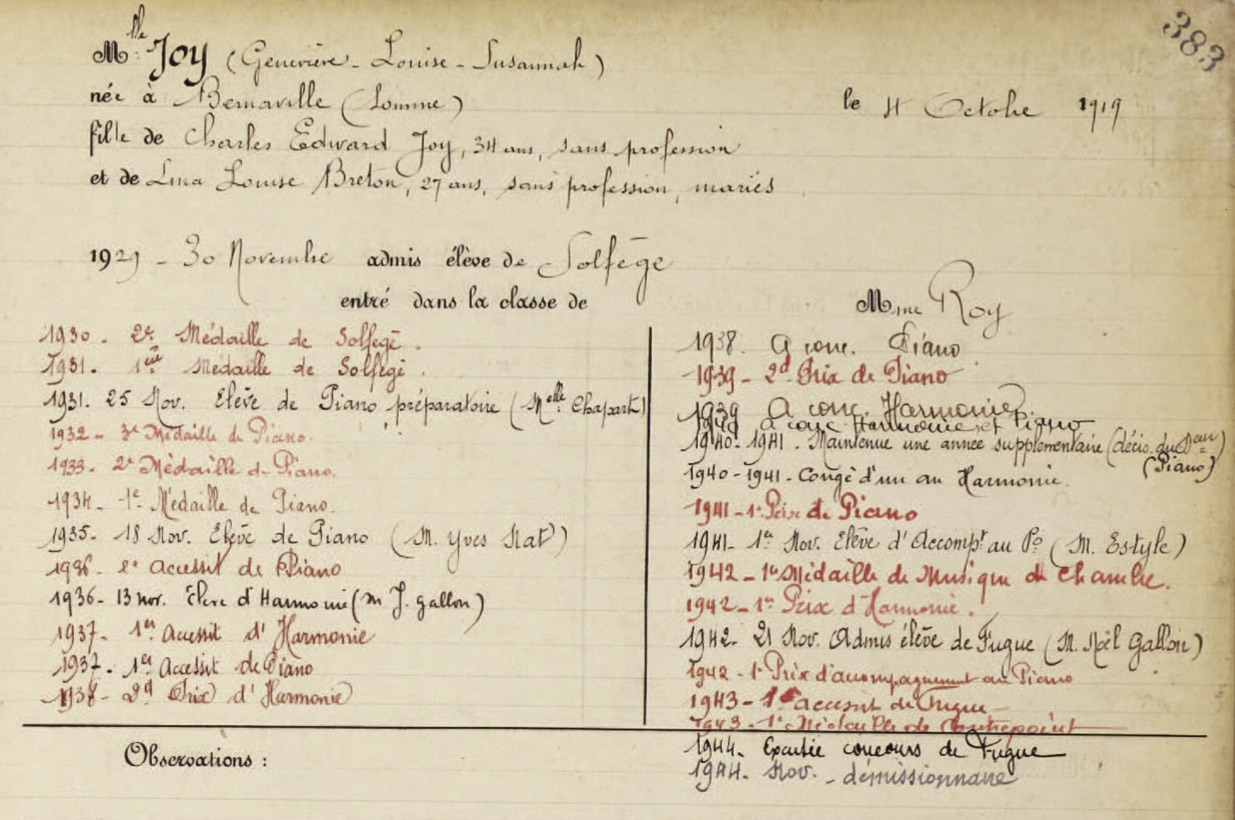 383
Mlle Joy (Geneviève - Louise - Susannah)
née à Bernaville (Somme) le 4 Octobre 1919
fille de Charles Edward Joy, 34 ans, sans profession
et de Lina Louise Breton, 27 ans, sans profession, mariés
1929 - 30 Novembre admis élève de Solfège
entré dans la classe de Mme Roy
1930. 2e Médaille de Solfège.
1931. 1ère Médaille de Solfège.
1931. 25 Nov. Elève de Piano préparatoire (Melle Chapart)
1932 - 3e Médaille de Piano.
1933. 2e Médaille de Piano.
1934. 1e Médaille de Piano.
1935. 18 Nov. Elève de Piano (M. Yves Nat)
1936. 2e Accessit de Piano
1936 - 13 nov. Elève d'Harmonie (M J. Gallon)
1937 - 1er Accessit d'Harmonie
1937 - 1er Accessit de Piano
1938 - 2d Prix d'Harmonie
1938. A conc. Piano
1939 - 2d Prix de Piano
1939 A conc. Harmonie
1940 A conc Harmonie et Piano
1940-1941. Maintenue une année supplémentaire (décis. du Deur) (Piano)
1940-1941 - Congé d'un an Harmonie.
1941 - 1e Prix de Piano
1941 - 1er Nov. Elève d'Accompt au Po (M. Estyle)
1942 - 1e Médaille de Musique de Chambre.
1942 - 1er Prix d'Harmonie.
1942 - 21 Nov. Admis élève de Fugue (M. Noël Gallon)
1942 - 1e Prix d'accompagnement au Piano
1943 - 1e accessit de Fugue
1943 - 1e Médaille de Contrepoint
1944. concours de Fugue
1944. Nov. - démissionnaire
Observations :